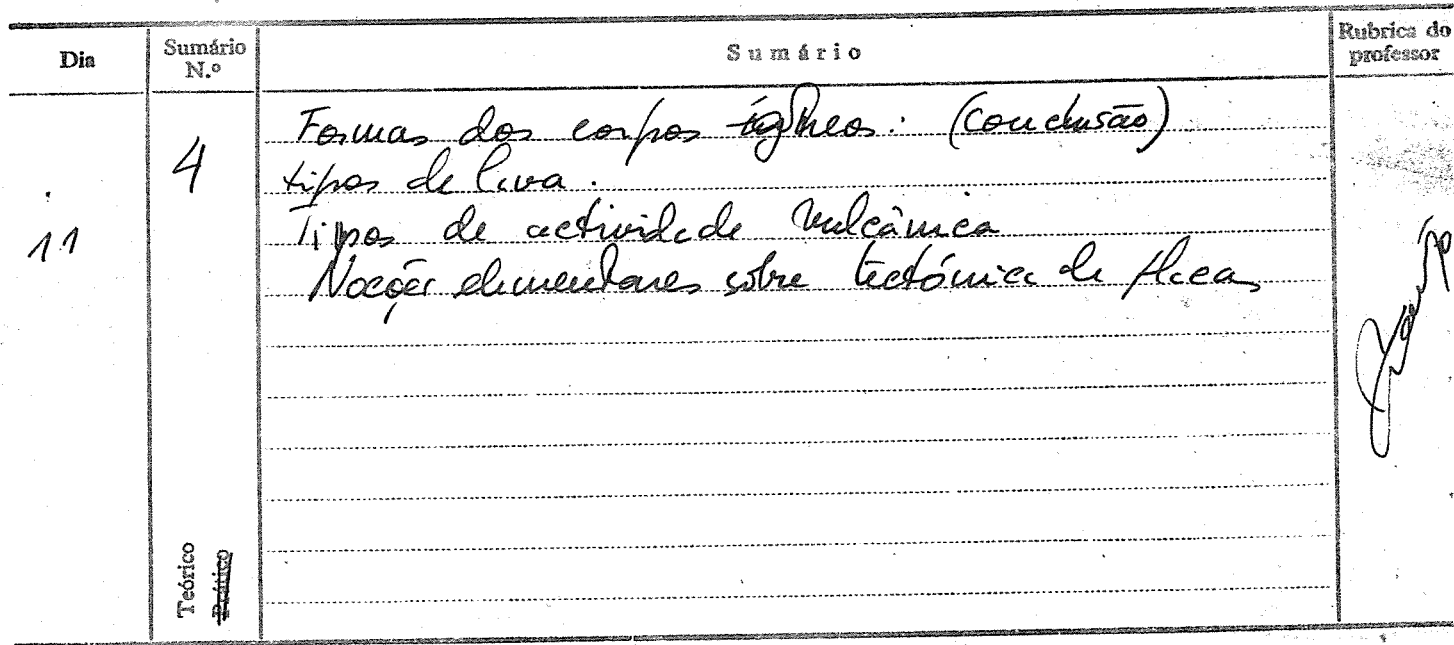 Dia
Sumário N.º
Sumário
Rubrica do professor
11
4
Formas dos corpos ígneos: (conclusão)
tipos de lava.
Tipos de actividade vulcânica
Noções elementares sobre tectónica de placas
Teórico
Prático